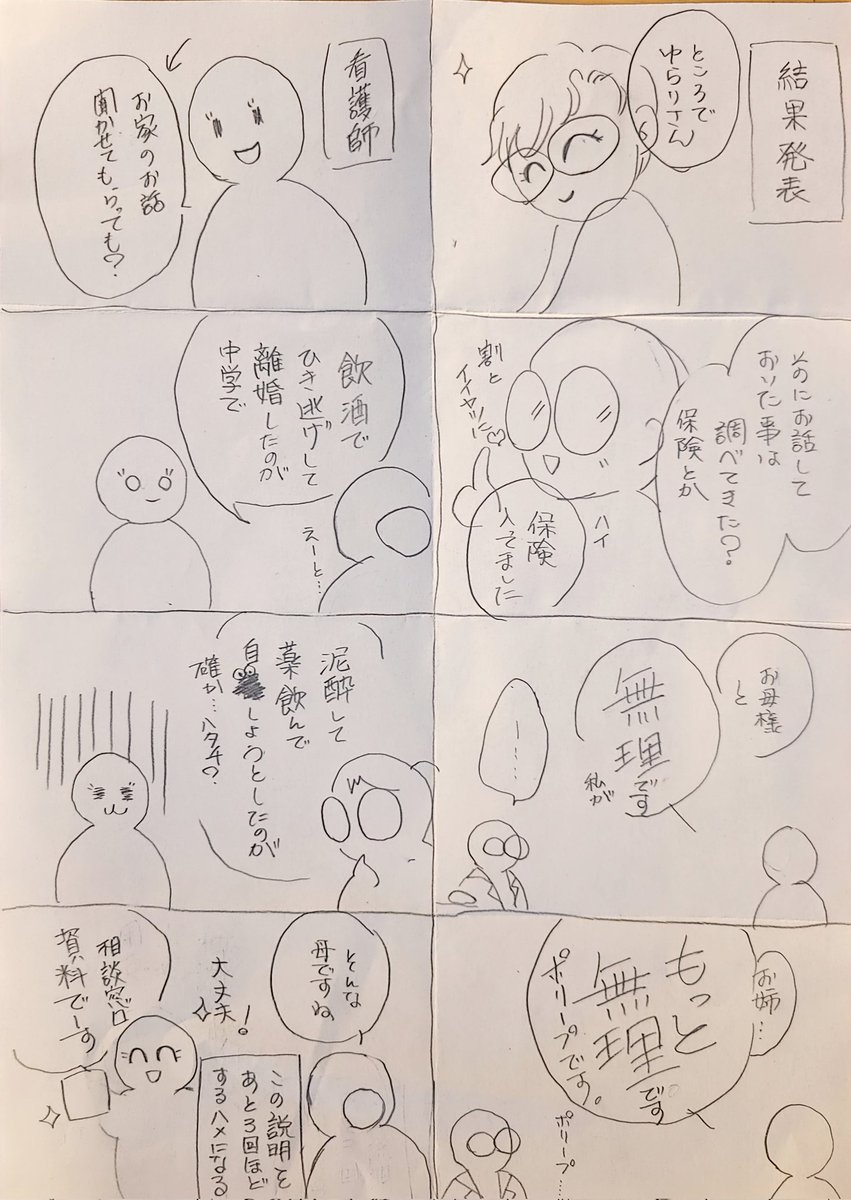 結果発表
ところで
ゆらりさん
お話して
おいた事は
調べてきた?
保険とか
ハイ
保険
入ってました
割と
イイヤツに♡
お母様
と
無理です
私が
……
お姉…
もっと
無理です
ポリープです。
ポリープ…
看護師
お家のお話
聞かせてもらっても?
飲酒で
ひき逃げして
離婚したのが
中学で
えーと…
泥酔して
薬飲んで
自しようとしたのが
確か…ハタチ?
そんな
母ですね
この説明を
あと3回ほど
するハメになる
大丈夫!
相談窓口
資料でーす